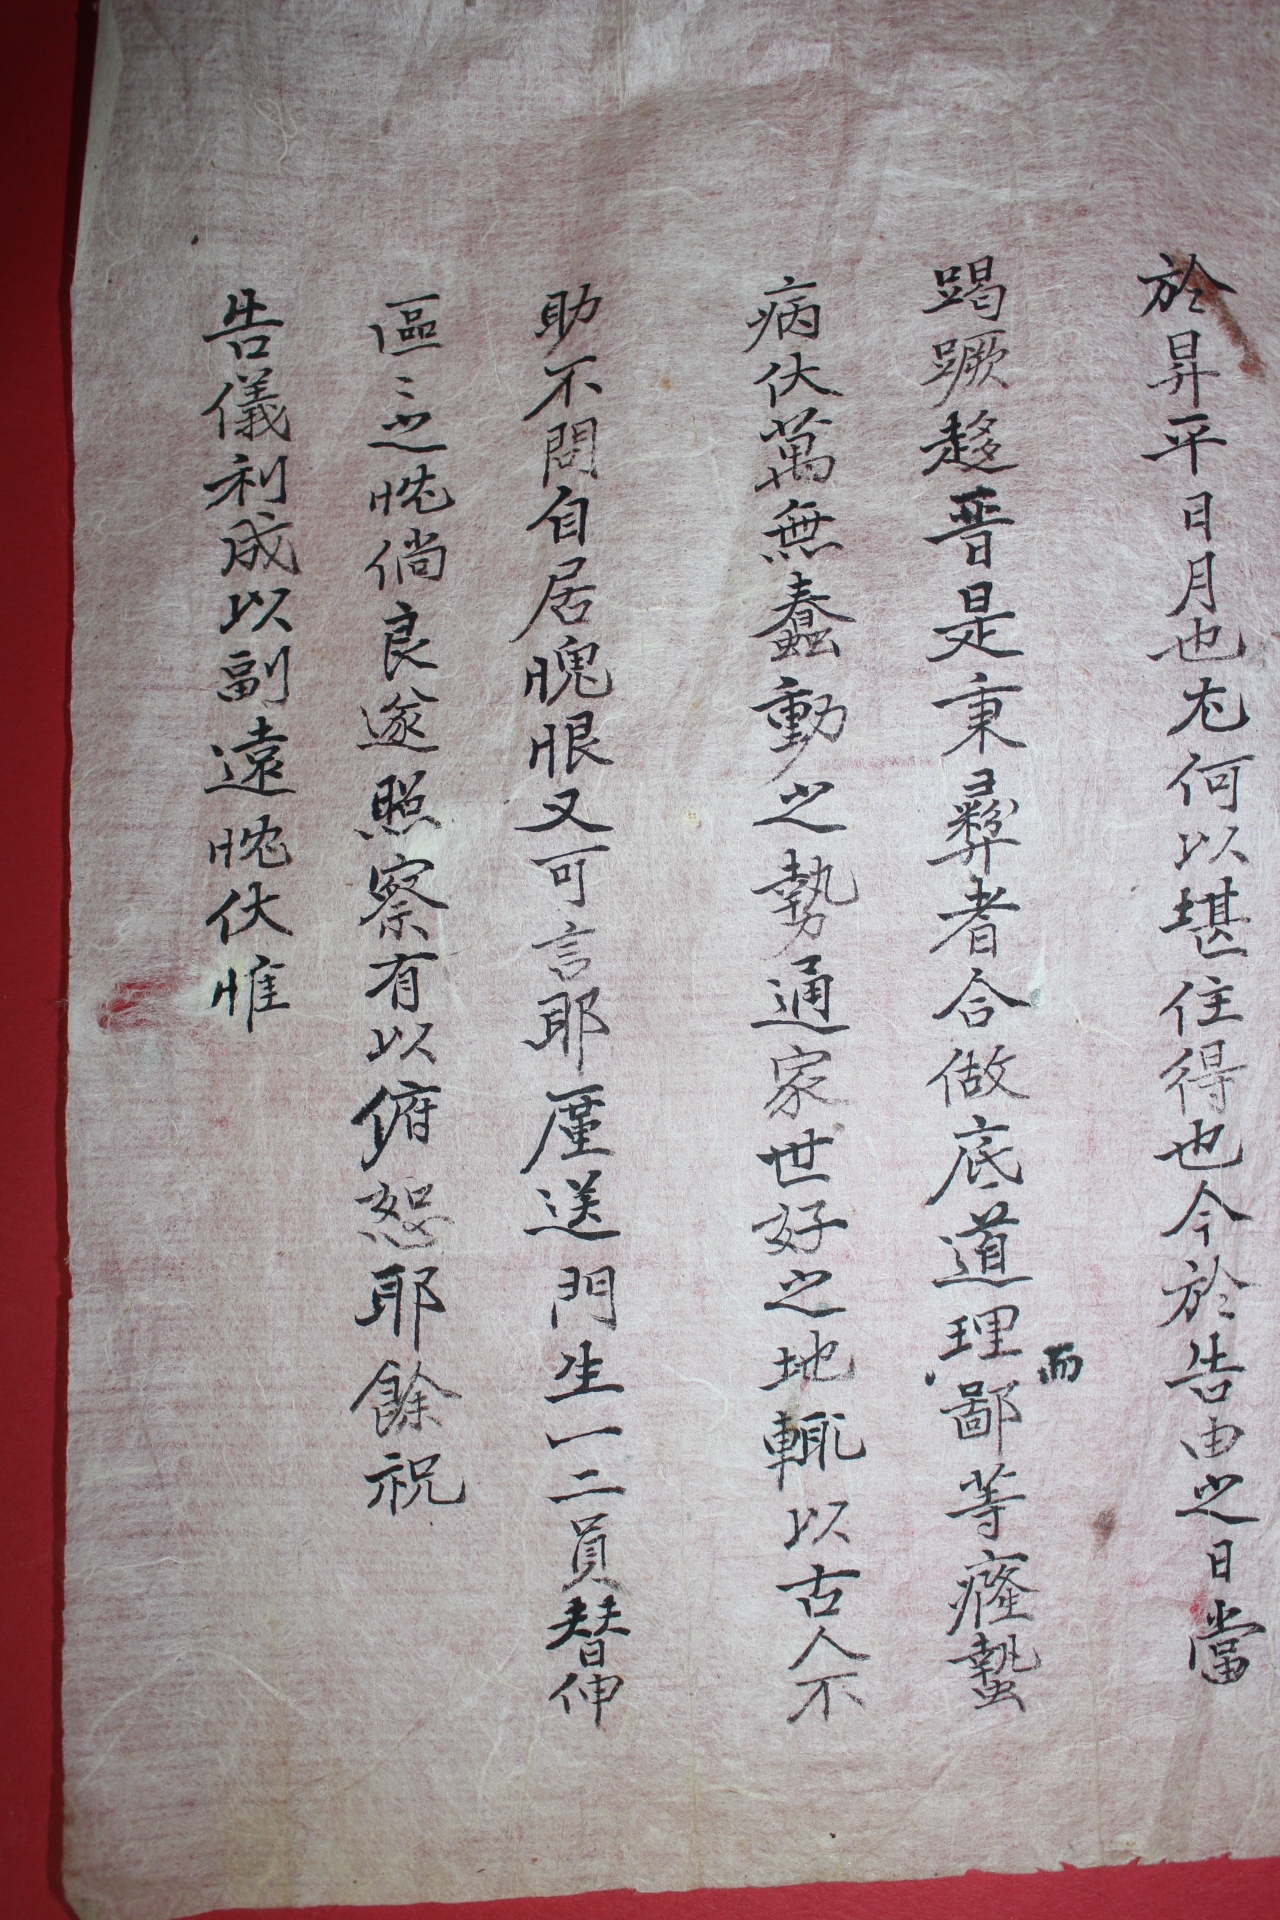 於昇平日月也尤何以堪住得也今於告由之日當
蹋蹶趍晉是秉彛者合做底道理而鄙等癃蟄
病伏萬無蠢動之勢通家世好之地輒以古人不
助不問自居愧恨又可言耶厪送門生一二員替伸
區〻之忱倘良遂照察有以俯恕耶餘祝
告儀利成以副遠忱伏惟